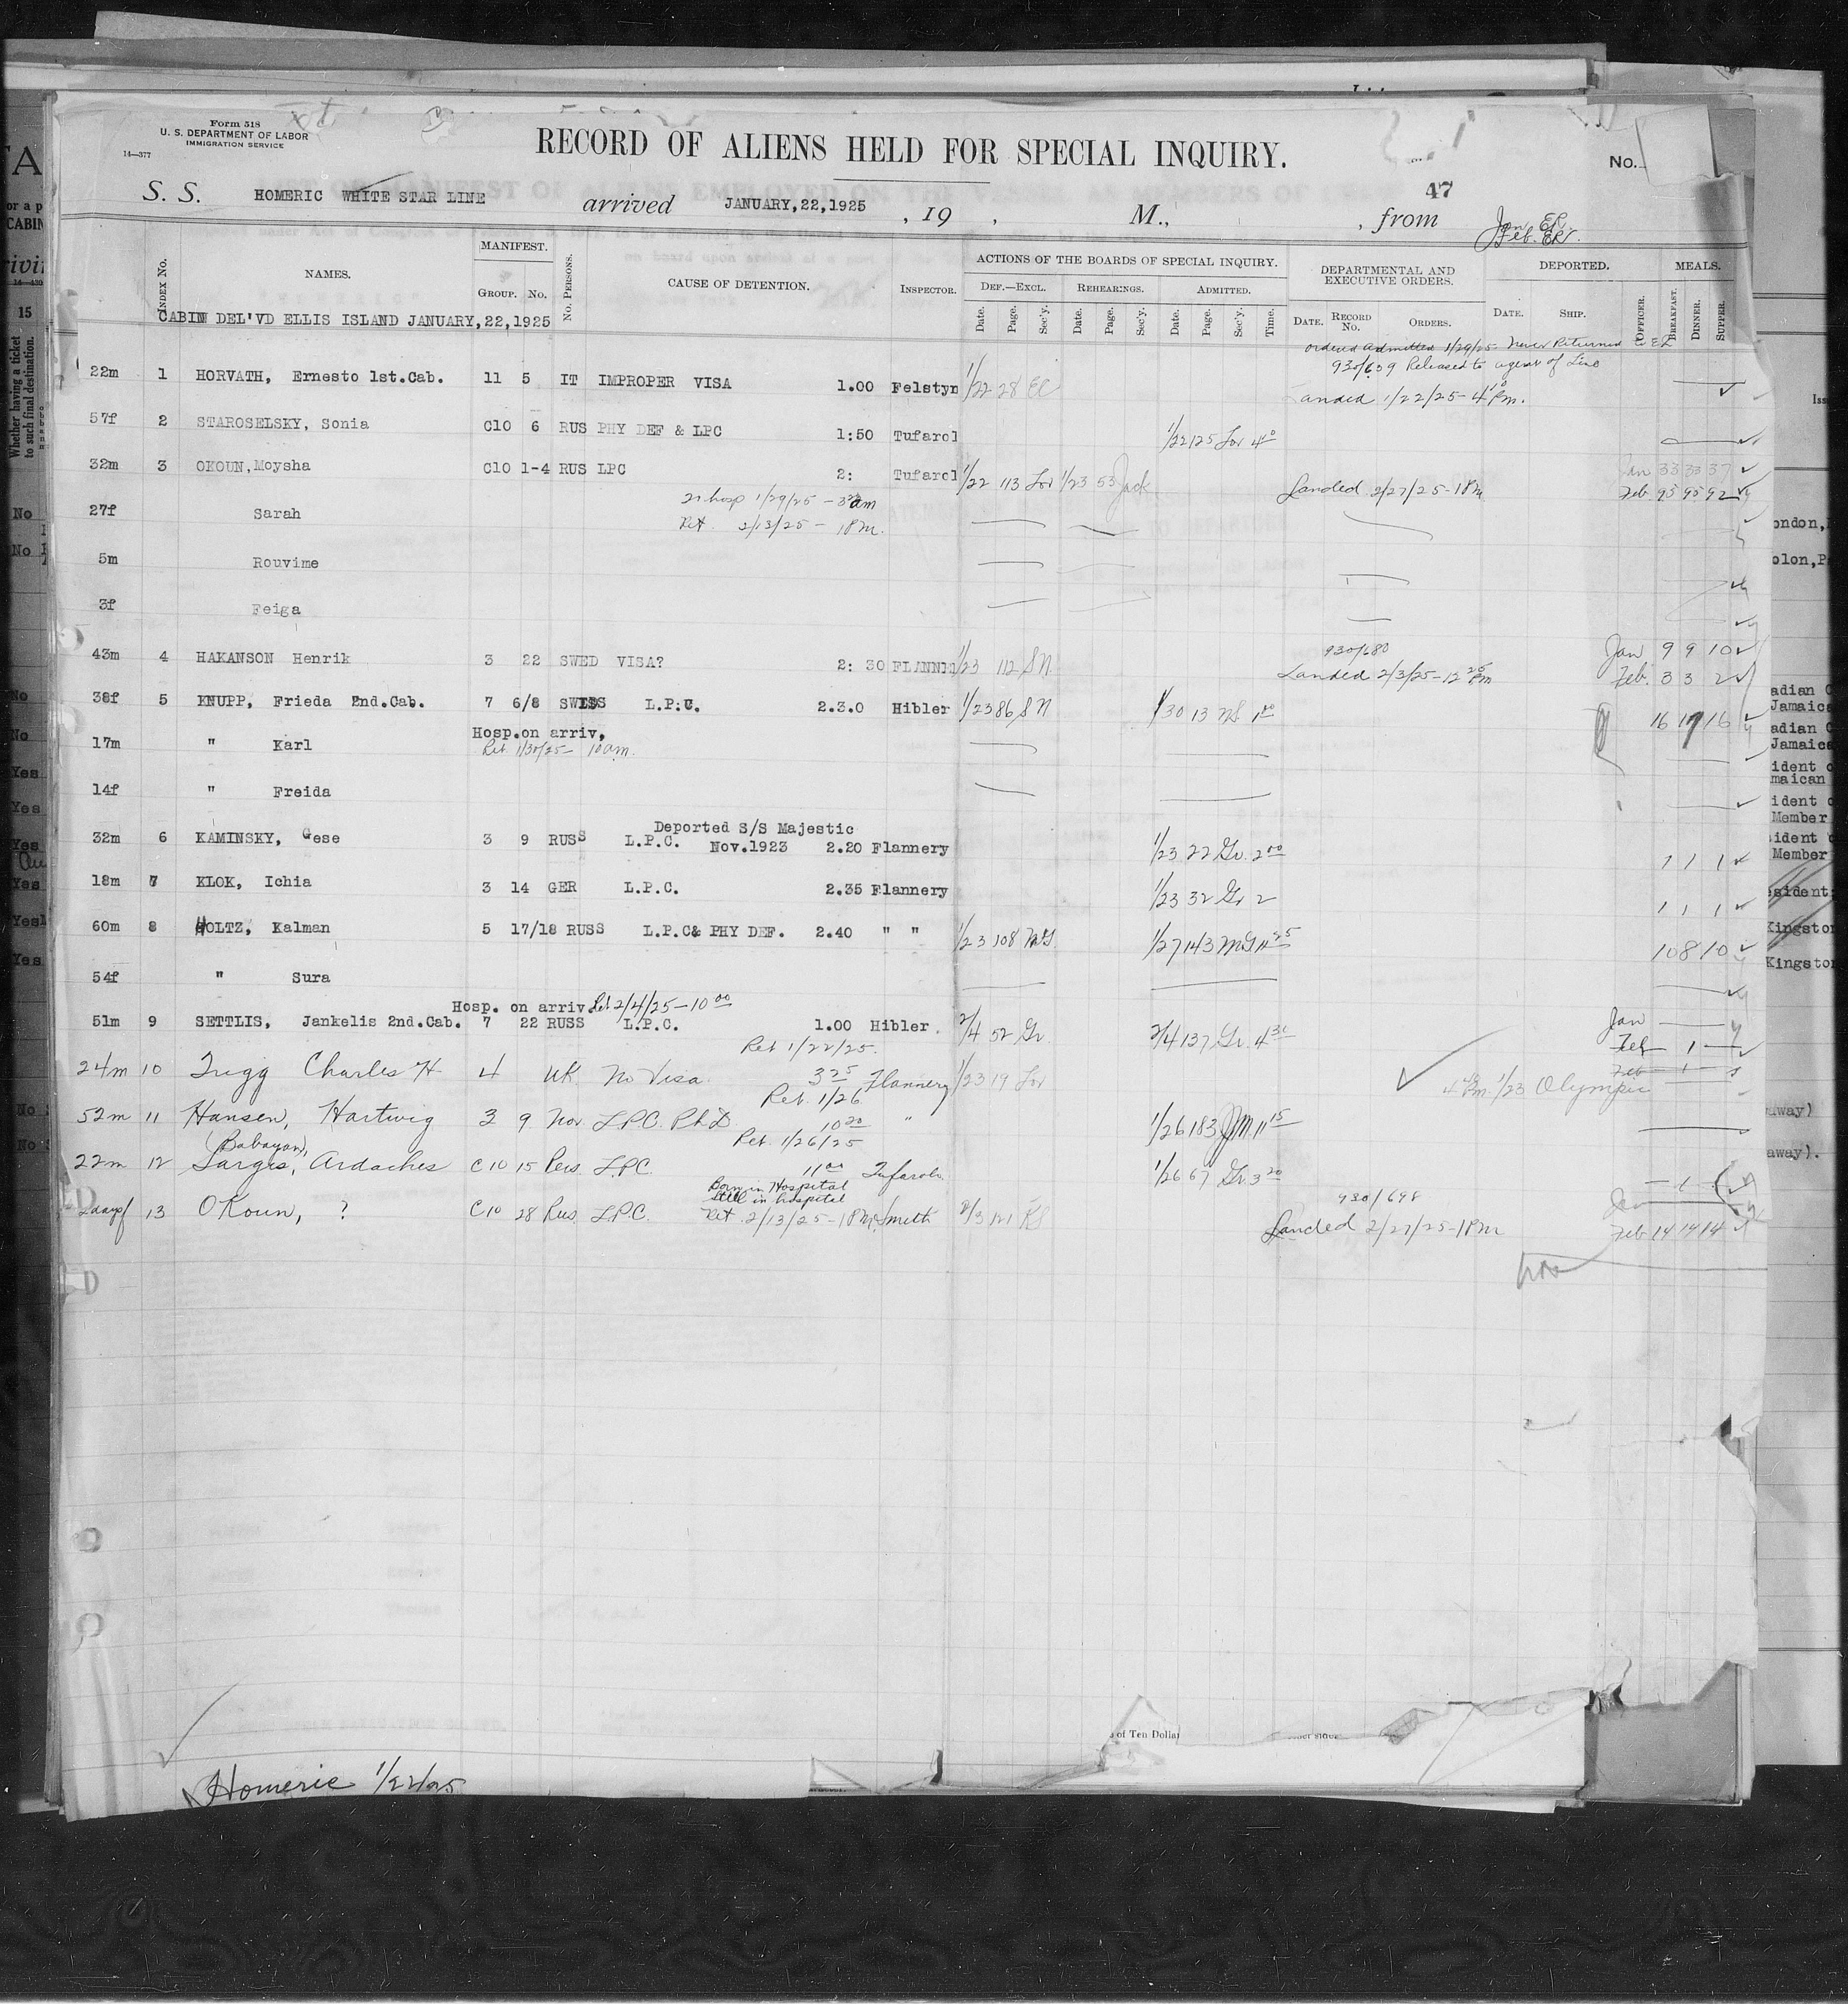 Form 518
U. S. DEPARTMENT OF LABOR
IMMIGRATION SERVICE
14—377
RECORD OF ALIENS HELD FOR SPECIAL INQUIRY.
No.
47
S. S. HOMERIC WHITE STAR LINE arrived JANUARY,22,1925 , 19 , M., , from
Jan ER.
Feb. ER.
INDEX No. NAMES. MANIFEST. GROUP. No. No. PERSONS. CAUSE OF DETENTION. INSPECTOR. ACTIONS OF THE BOARDS OF SPECIAL INQUIRY. DEPARTMENTAL AND EXECUTIVE ORDERS. DEPORTED. MEALS.
DEF.—EXCL. REHEARINGS. ADMITTED.
Date. Page. Sec'y. Date. Page. Sec'y. Date. Page. Sec'y. Time. DATE. RECORD No. ORDERS. DATE. SHIP. OFFICER. BREAKFAST. DINNER. SUPPER.
CABIN DEL'VD ELLIS ISLAND JANUARY,22,1925
ordered admitted 1/29/25 Never Returned to EI
930/639 Released to agent of Line
22m 1 HORVATH, Ernesto 1st.Cab. 11 5 IT IMPROPER VISA 1.00 Felstyn 1/22 28 EC
Landed 1/22/25 - 4 10 Pm.
57f 2 STAROSELSKY, Sonia C10 6 RUS PHY DEF & LPC 1:50 Tufarol 1/22 125 Lor 4 10
32m 3 OKOUN, Moysha C10 1-4 RUS LPC 2: Tufarol 1/22 113 Lor 1/23 53 Jack Landed 2/27/25-1 Pm Jan 33 33 37
Feb. 95 95 92
In hosp 1/29/25 - 3 am
27f Sarah Ret. 2/13/25 - 1 Pm.
5m Rouvime
3f Feiga
930/680
43m 4 HAKANSON Henrik 3 22 SWED VISA? 2: 30 FLANNIG 1/23 112 SN Landed 2/3/25-12 25 Pm Jan 9 9 10
Feb. 3 3 2
38f 5 KNUPP, Frieda 2nd.Cab. 7 6/8 SWISS L.P.C. 2.3.0 Hibler 1/23 86 SN 1/30 13 NS 1 00 16 17 16
Hosp.on arriv,
17m " Karl Ret. 1/30/25- 10 am.
14f " Freida
Deported S/S Majestic
32m 6 KAMINSKY, Gese 3 9 RUSS L.P.C. Nov.1923 2.20 Flannery 1/23 22 Gr. 2 00 1 1 1
18m 7 KLOK, Ichia 3 14 GER L.P.C. 2.35 Flannery 1/23 32 Gr 2 1 1 1
60m 8 HOLTZ, Kalman 5 17/18 RUSS L.P.C& PHY DEF. 2.40 " " 1/23 108 McG. 1/27 143 McG 11 25 10 8 10
54f " Sura
Hosp. on arriv. Ret 2/4/25-10 00
51m 9 SETTLIS, Jankelis 2nd.Cab. 7 22 RUSS L.P.C. 1.00 Hibler. 2/4 52 Gr. 2/4 137 Gr. 4 30 Jan
Feb 1
Ret 1/22/25.
24m 10 Trigg Charles H 4 UK. No Visa. 3 25 Flannery 1/23 19 Lor 4 Pm. 1/23 Olympic
Ret. 1/26
52m 11 Hansen, Hartwig 3 9 Nor. L.P.C. Ph.D. 10 20 " 1/26 183 JJM. 11 15
(Babayan), Ret. 1/26/25
22m 12 Sarges, Ardaches C10 15 Pers. L.P.C. 11 00 Tufarolo. 1/26 67 Gr. 3 20 1
Born in Hospital
Still in hospital
930/698
2 days f 13 OKoun, ? C10 28 Rus. L.P.C. Ret. 2/13/25-1 Pm. Smith 2/3 121 RS Landed 2/27/25-1 Pm Jan
Feb 14 14 14
s of Ten Dollar
Homeric 1/22/25
15
Whether having a ticket
to such final destination.
No
Yes
ondon,
olon,P
adian
Jamaica
adian
Jamaica
ident
maican
ident
Member
sident
Member
esident;
Kingston
Kingston
away)
away).